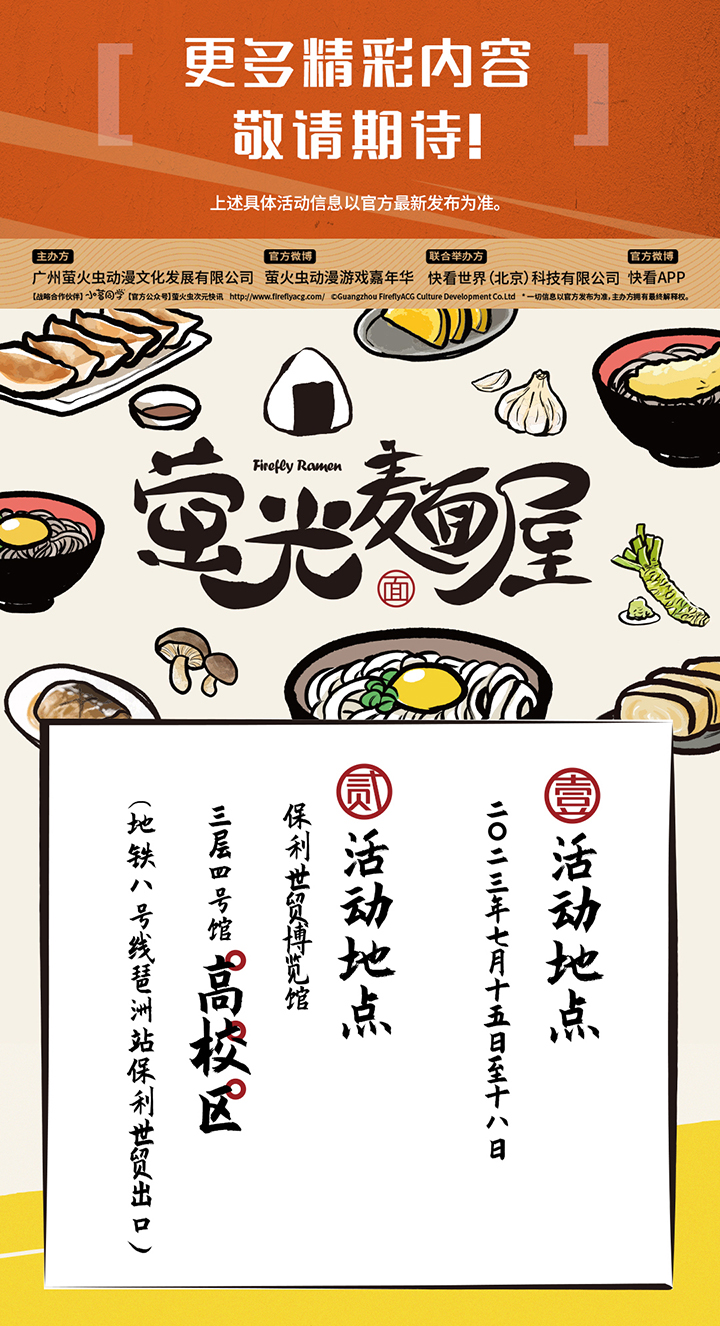 更多精彩内容
敬请期待!
上述具体活动信息以官方最新发布为准。
主办方
广州萤火虫动漫文化发展有限公司
官方微博
萤火虫动漫游戏嘉年华
联合举办方
快看世界（北京）科技有限公司
官方微博
快看APP
【战略合作伙伴】小茗同学 【官方公众号】萤火虫次元快讯 http://www.fireflyacg.com/ ©Guangzhou FireflyACG Culture Development Co.Ltd *一切信息以官方发布为准，主办方拥有最终解释权。
Firefly Ramen
萤光麺屋
面
壹
活动地点
二〇二三年七月十五日至十八日
贰
活动地点
保利世贸博览馆
三层四号馆 高校区
（地铁八号线琶洲站保利世贸出口）